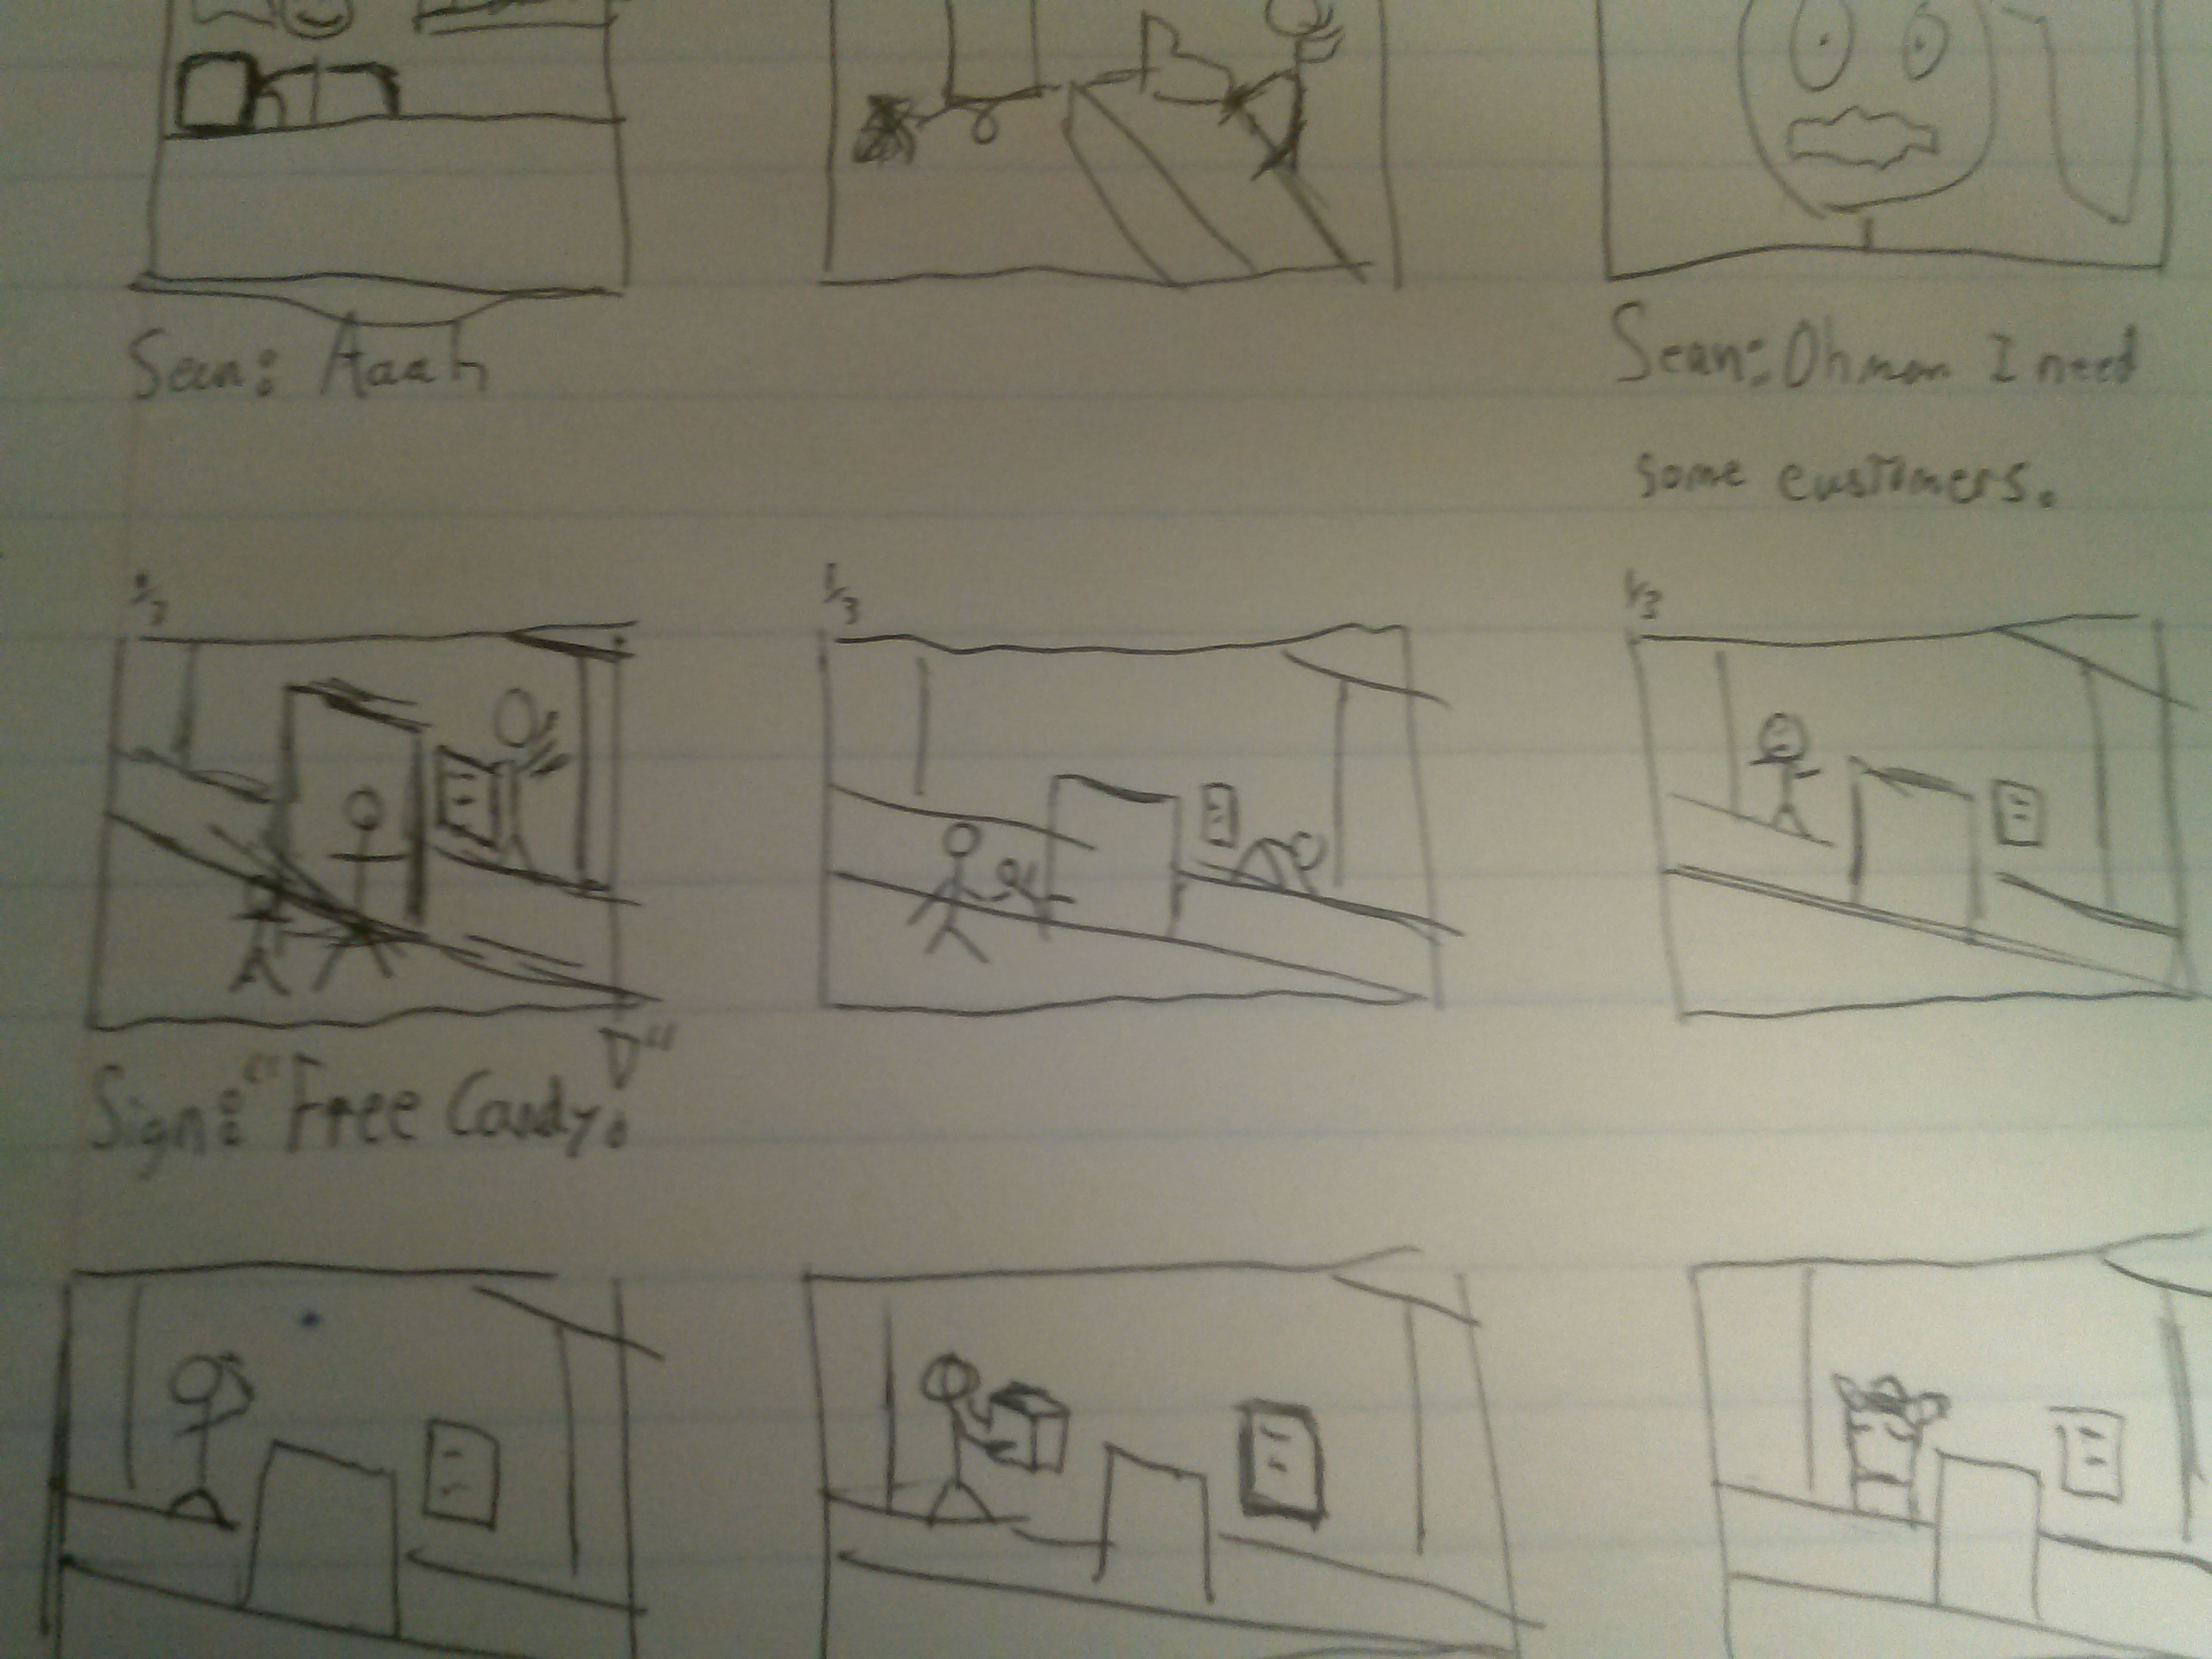 Sean: Aaah
Sean: Oh man I need
some customers.
1/3
1/3
1/3
Sign: "Free Candy: D"